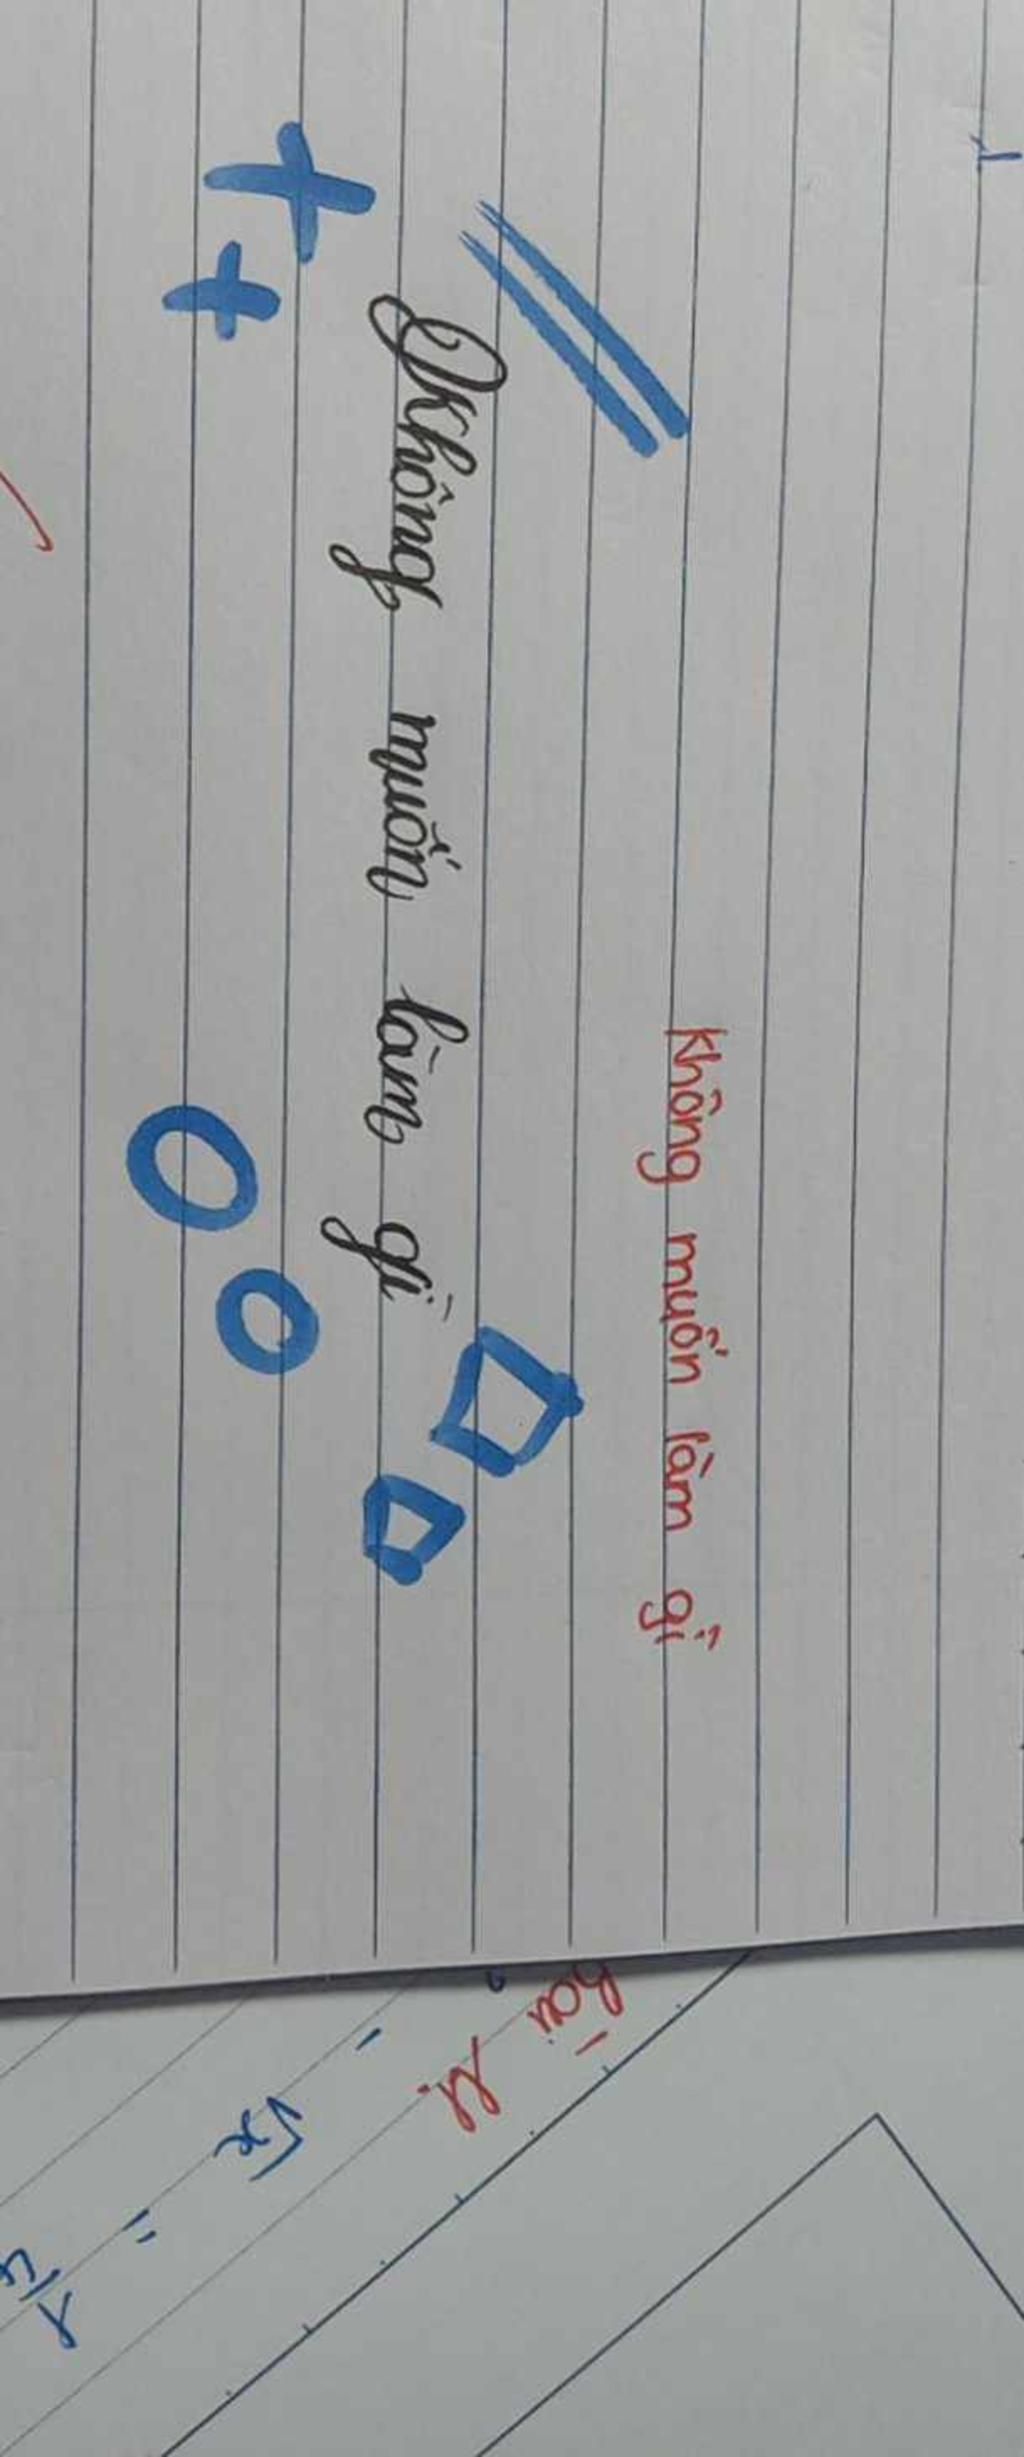 không muốn làm gì
Không muốn làm gì
Bài
√x